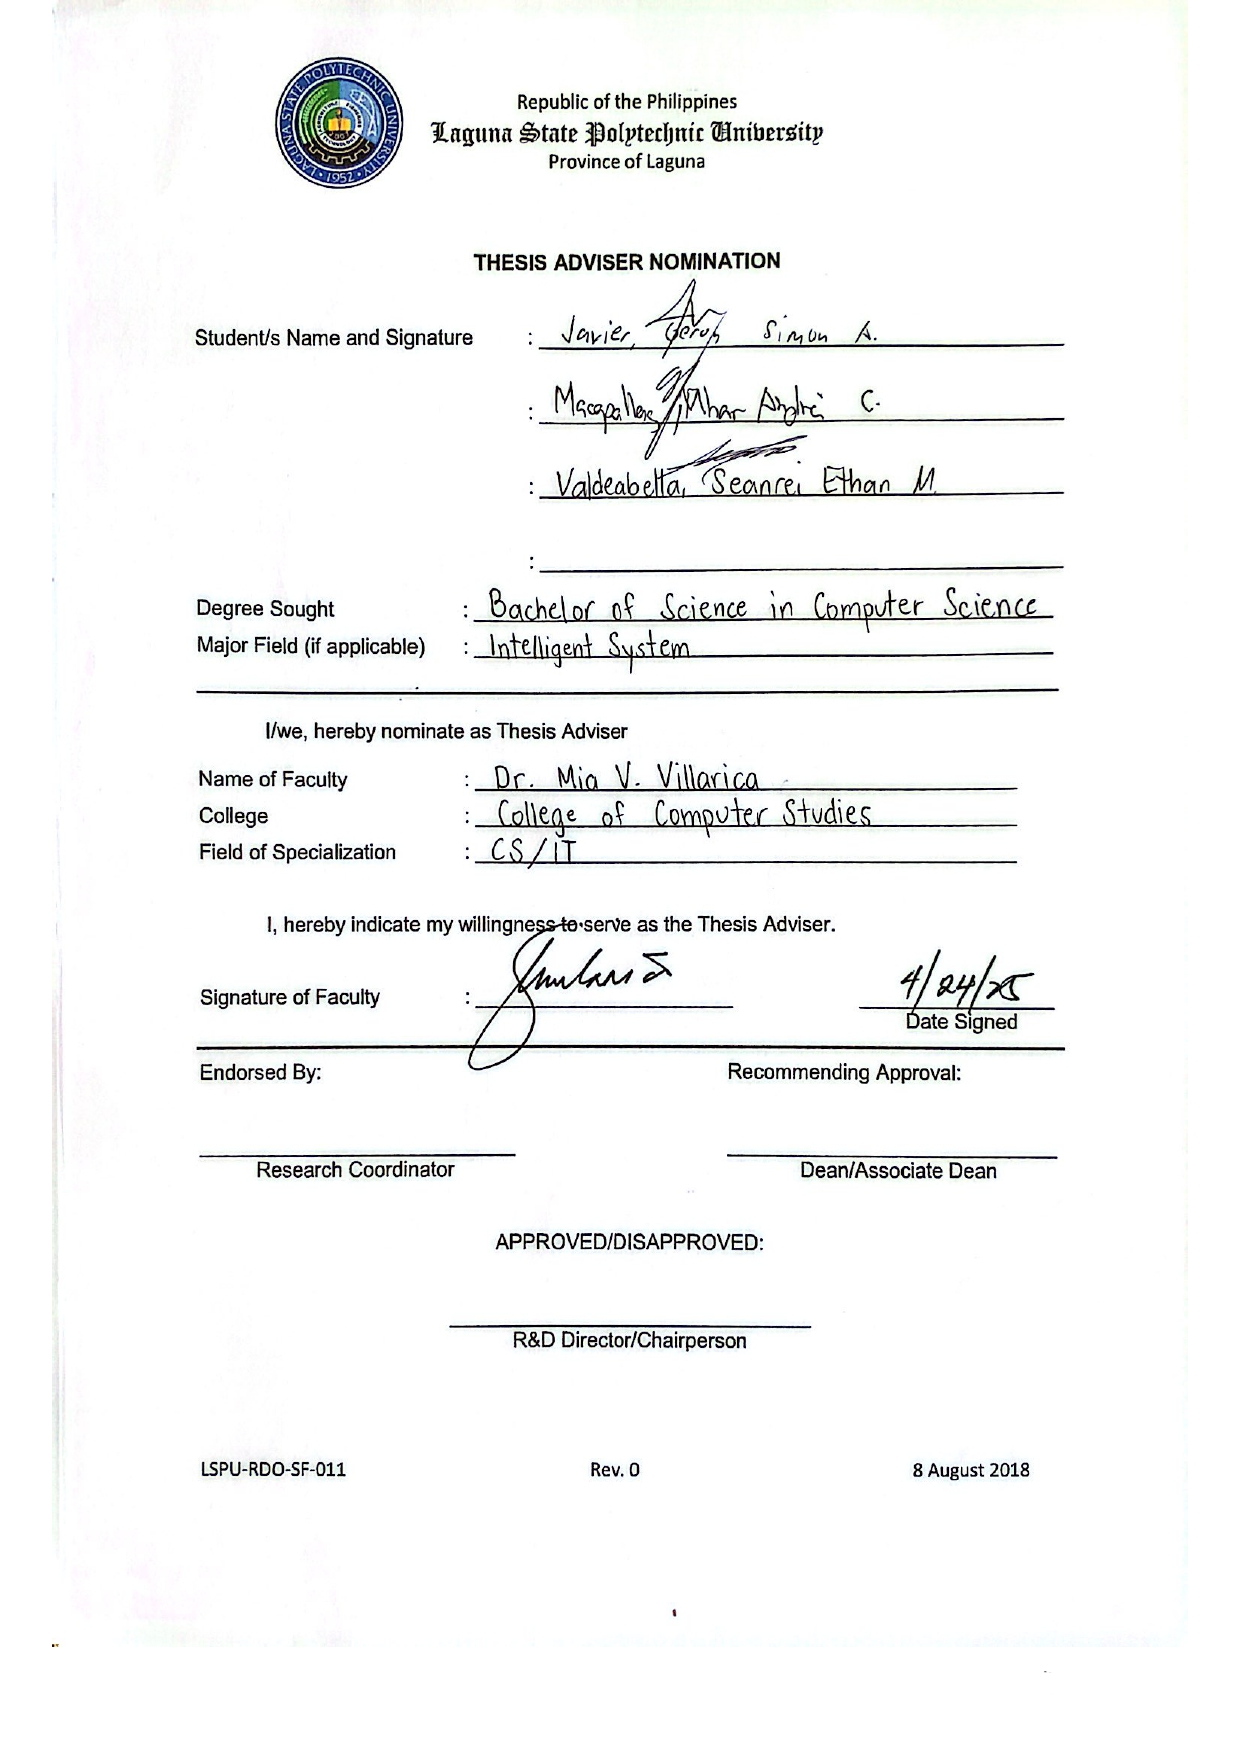 LAGUNA STATE POLYTECHNIC UNIVERSITY
1952
Republic of the Philippines
Laguna State Polytechnic University
Province of Laguna
THESIS ADVISER NOMINATION
Student/s Name and Signature : Javier, Simon A.
: Andrei C.
: Valdeabella, Seanrei Ethan M.
:
Degree Sought : Bachelor of Science in Computer Science
Major Field (if applicable) : Intelligent System
I/we, hereby nominate as Thesis Adviser
Name of Faculty : Dr. Mia V. Villarica
College : College of Computer Studies
Field of Specialization : CS/IT
I, hereby indicate my willingness to serve as the Thesis Adviser.
Signature of Faculty : 4/24/25
Date Signed
Endorsed By: Recommending Approval:
Research Coordinator Dean/Associate Dean
APPROVED/DISAPPROVED:
R&D Director/Chairperson
LSPU-RDO-SF-011 Rev. 0 8 August 2018